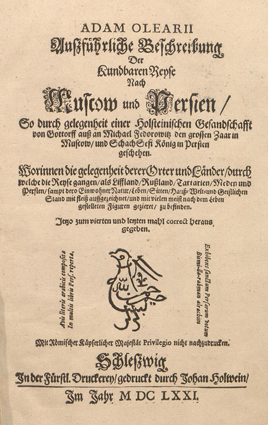 ADAM OLEARII
Außführliche Beschreibung
Der
Kundbaren Reyse
Nach
Muscow und Persien/
So durch gelegenheit einer Holsteinischen Gesandschafft
von Gottorff auß an Michael Fedorowitz den grossen Zaar in
Muscow/ und Schach Sefi König in Persien
geschehen.
Worinnen die gelegenheit derer Orter und Länder/ durch
welche die Reyse gangen/ als Liffland/ Rußland/ Tartarien/ Meden und
Persien/ sampt dero Einwohner Natur/ Leben/ Sitten/ Hauß- Welt- und Geistlichen
Stand mit fleiß auffgezeichnet/ und mit vielen meist nach dem leben
gestelleten Figuren gezieret/ zu befinden.
Jetzo zum vierten und letzten mahl correct heraus
gegeben.
Avis literis arabicis composita
In multis libris Pers. reperta.
Mit Römischer Käyserlicher Majestät Privilegio nicht nachzudrucken.
Schleßwig
In der Fürstl. Druckerey/ gedruckt durch Johan Holwein/
Im Jahr M DC LXXI.